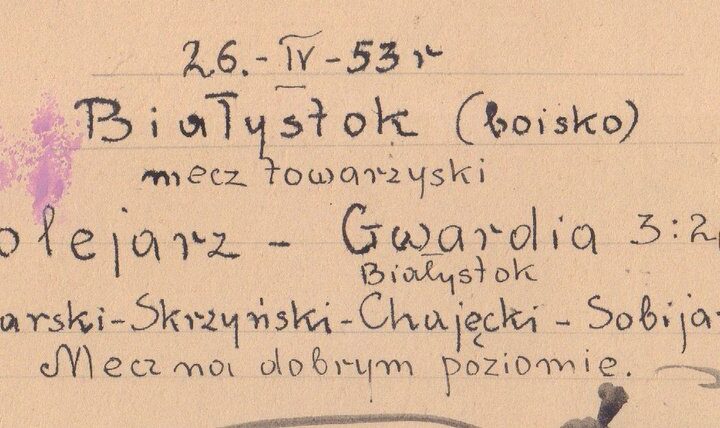 26.-IV-53r
Białystok (boisko)
mecz towarzyski
olejarz - Gwardia 3:2
Białystok
arski-Skrzyński-Chajęcki - Sobija
Mecz na dobrym poziomie.